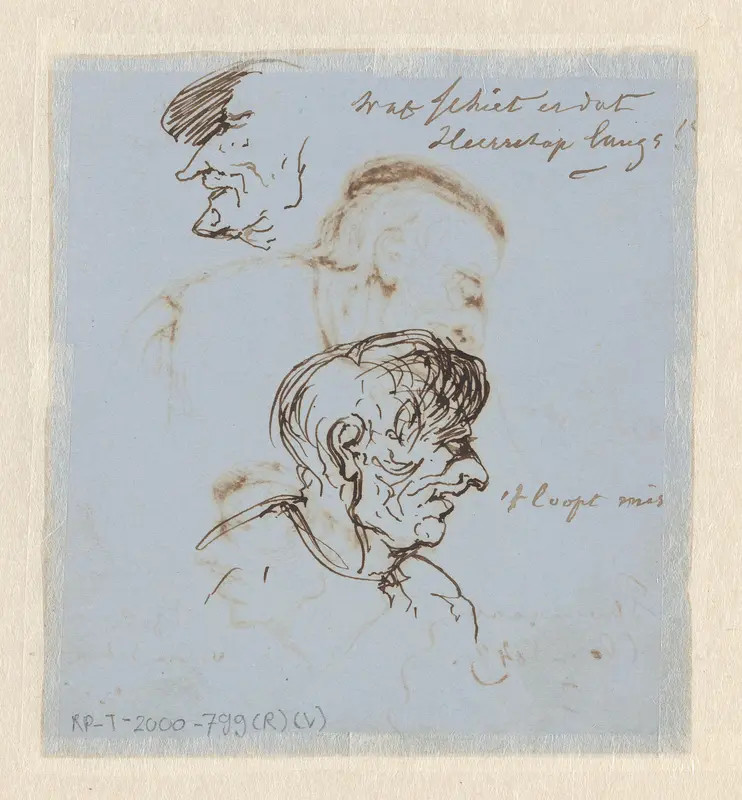 wat schiet er dat
Heerschap langs!!
't loopt mis
RP-T-2000-799(R)(V)